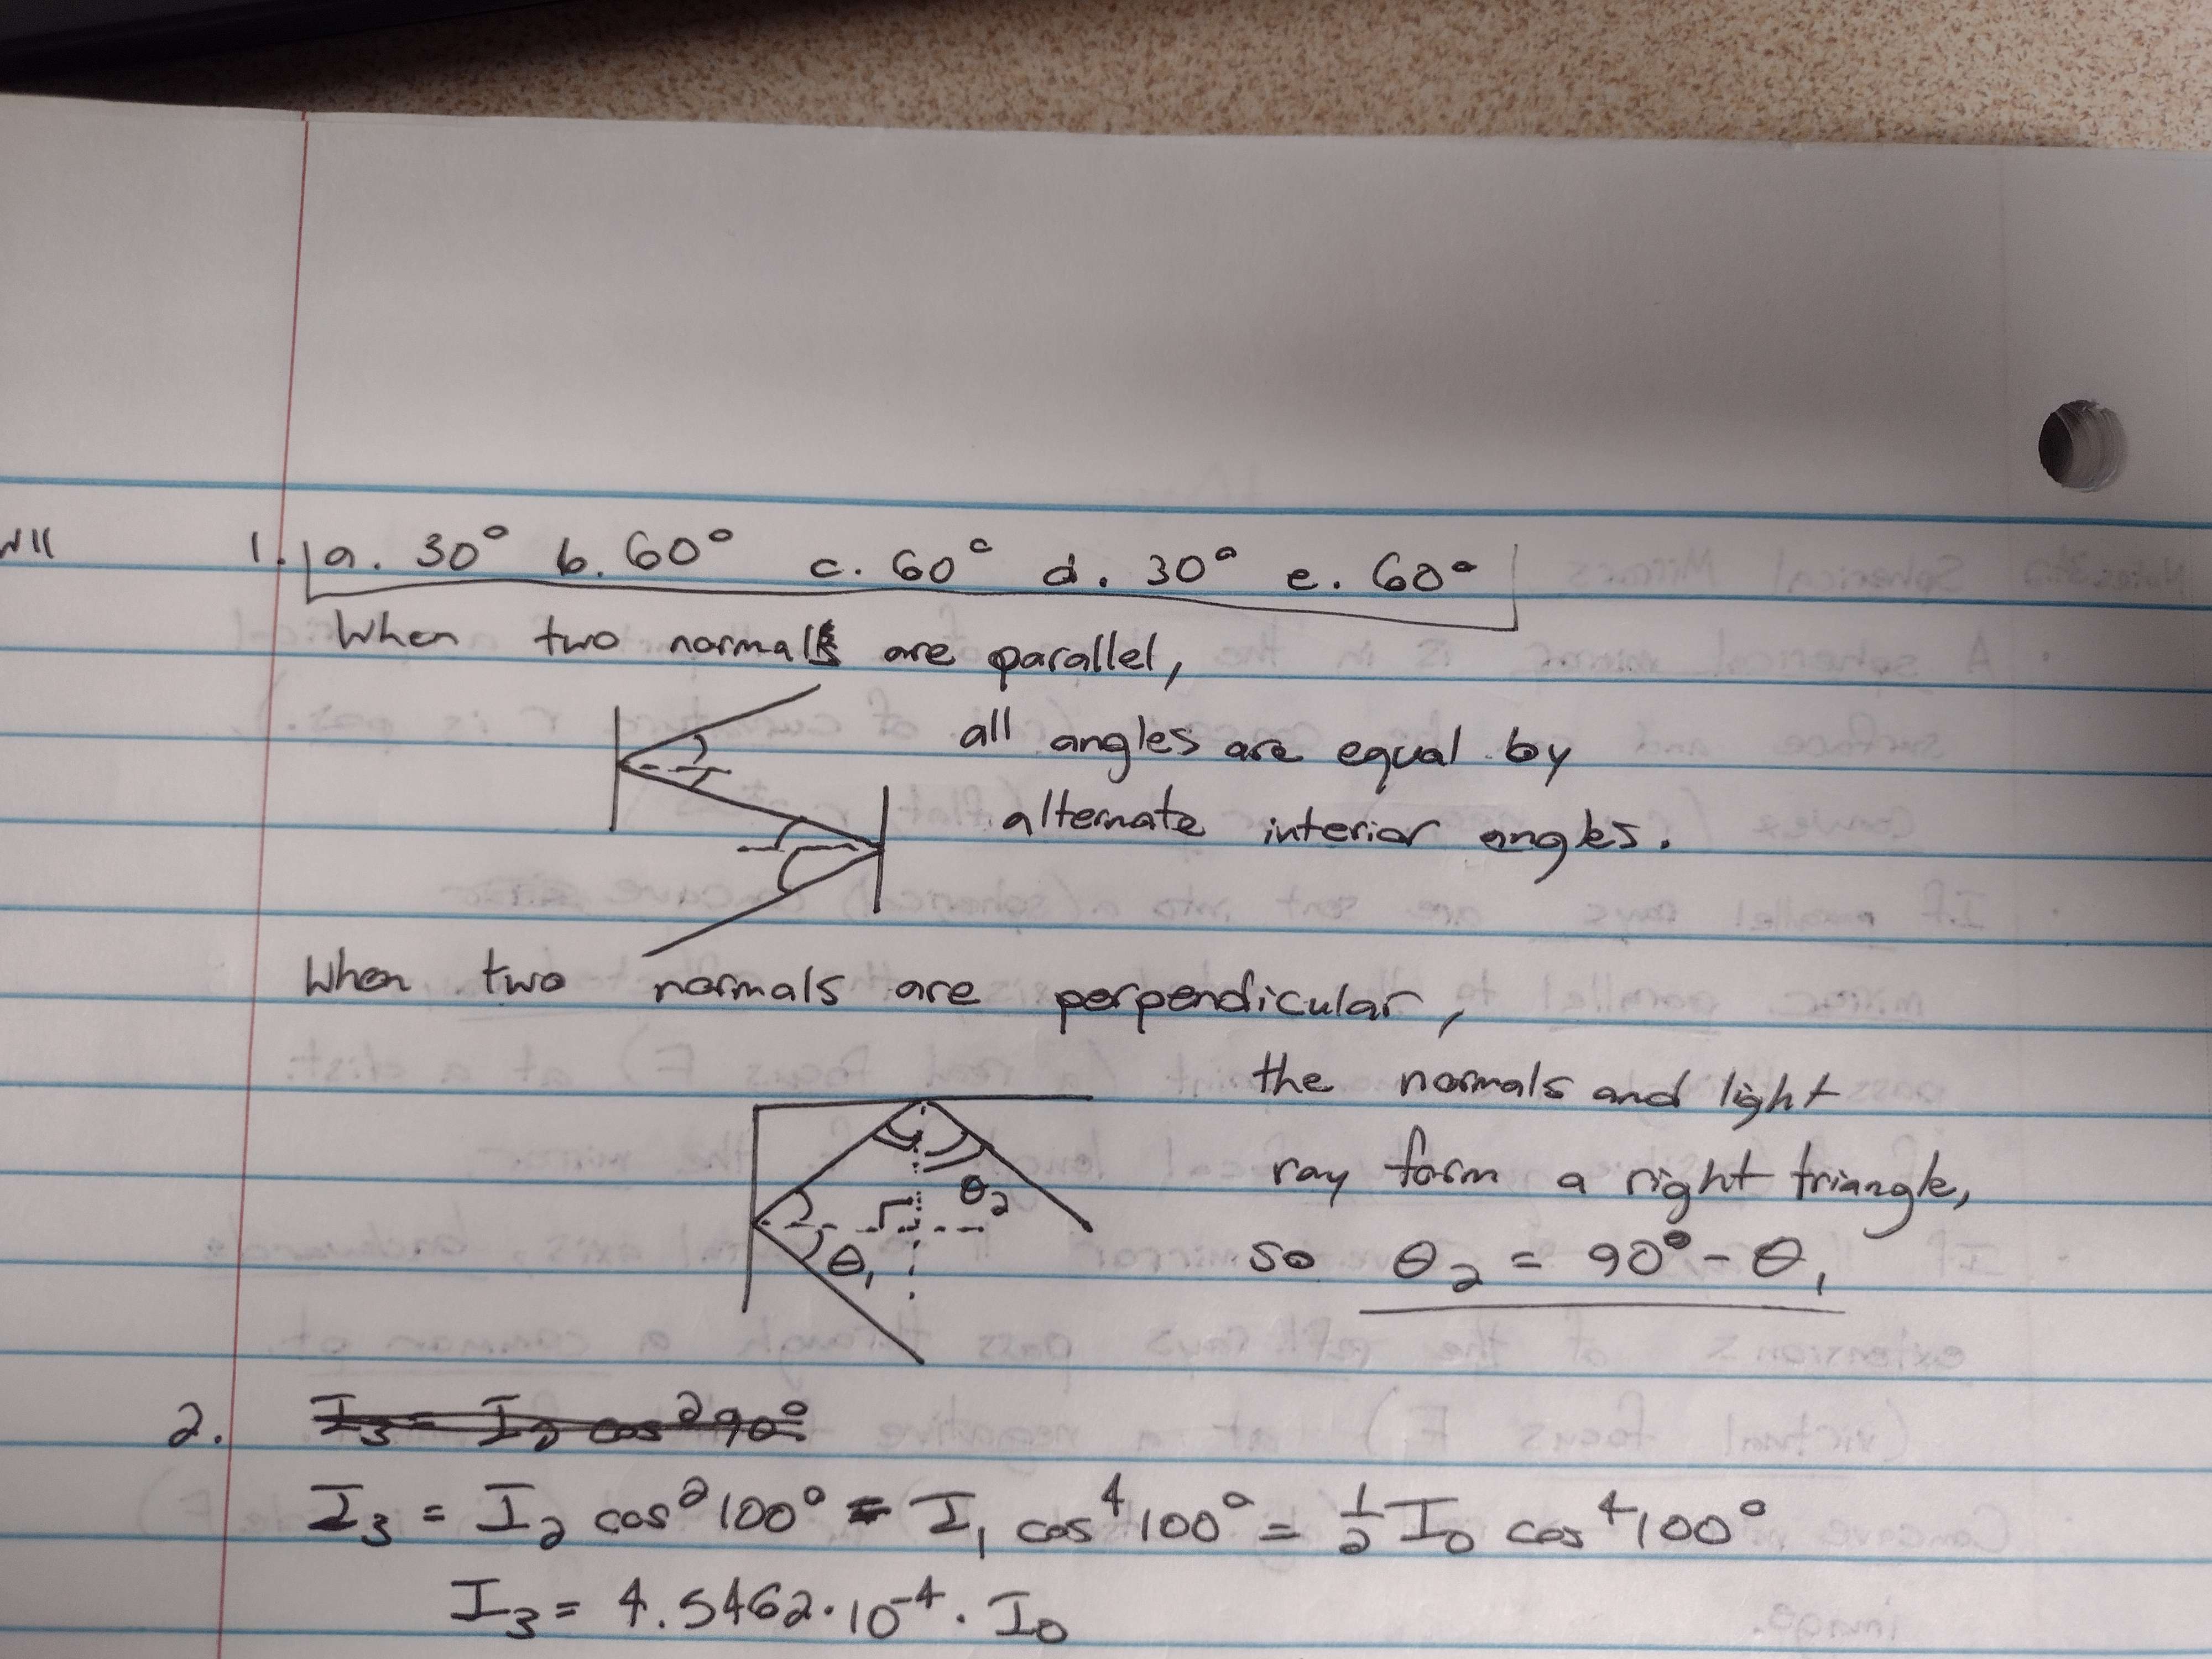 1. a. 30° b. 60° c. 60° d. 30° e. 60°
When two normals are parallel,
all angles are equal by
alternate interior angles.
When two normals are perpendicular,
the normals and light
ray form a right triangle,
θ₂
θ₁
so θ₂ = 90° - θ₁
2. I₃ = I₂ cos²90°
I₃ = I₂ cos²100° = I₁ cos⁴100° = ½I₀ cos⁴100°
I₃ = 4.5462·10⁻⁴·I₀